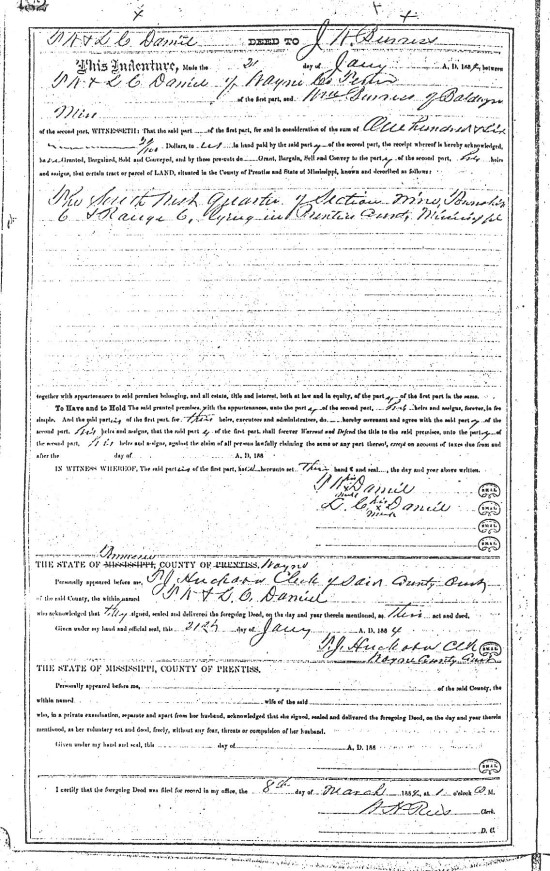 DEED TO J. W. Burress
This Indenture, Made the 21 day of Jany A. D. 1884, between
L. C. Daniel of Wayne Co
of the first part, and Burress of Baldwyn
Miss
of the second part, WITNESSETH: That the said part of the first part, for and in consideration of the sum of One hundred &
Dollars, to us in hand paid by the said party of the second part, the receipt whereof is hereby acknowledged,
have Granted, Bargained, Sold and Conveyed, and by these presents do Grant, Bargain, Sell and Convey to the party of the second part, his heirs
and assigns, that certain tract or parcel of LAND, situated in the County of Prentiss and State of Mississippi, known and described as follows:
The South West Quarter of Section Nine, Township
6 & Range 6, lying in Prentiss County, Mississippi
together with appurtenances to said premises belonging, and all estate, title and interest, both at law and in equity, of the party of the first part in the same.
To Have and to Hold The said granted premises, with the appurtenances, unto the party of the second part, his heirs and assigns, forever, in fee
simple. And the said parties of the first part, for their heirs, executors and administrators, do hereby covenant and agree with the said party of the
second part, his heirs and assigns, that the said part of the first part, shall forever Warrant and Defend the title to the said premises, unto the party of
the second part, his heirs and assigns, against the claim of all persons lawfully claiming the same or any part thereof, except on account of taxes due from and
after the day of A. D. 188
IN WITNESS WHEREOF, The said parties of the first part, hereunto set their hand s and seal, the day and year above written.
his
Daniel SEAL
mark
L. C. his x Daniel SEAL
mark
SEAL
SEAL
Tennessee
THE STATE OF MISSISSIPPI, COUNTY OF PRENTISS. Wayne
Personally appeared before me, Clerk of Said County Court
of the said County, the within named L. C. Daniel
who acknowledged that they signed, sealed and delivered the foregoing Deed, on the day and year therein mentioned, as their act and deed.
Given under my hand and official seal, this 21st day of Jany A. D. 1884
Clk SEAL
Wayne County Court
THE STATE OF MISSISSIPPI, COUNTY OF PRENTISS.
Personally appeared before me, of the said County, the
within named wife of the said
who, in a private examination, separate and apart from her husband, acknowledged that she signed, sealed and delivered the foregoing Deed, on the day and year therein
mentioned, as her voluntary act and deed, freely, without any fear, threats or compulsion of her husband.
Given under my hand and seal, this day of A. D. 188
SEAL
I certify that the foregoing Deed was filed for record in my office, the 8th day of March 1884, at 1 o'clock P. M.
Clerk.
D. C.